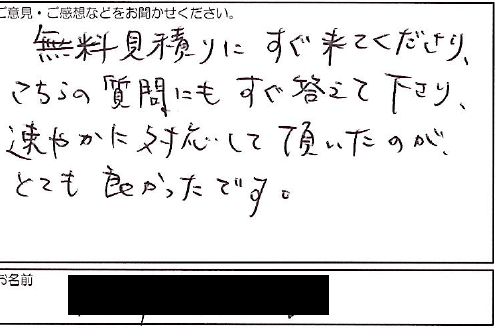 ご意見・ご感想などをお聞かせください。
無料見積りにすぐ来てくださり、
こちらの質問にもすぐ答えて下さり、
速やかに対応して頂いたのが、
とても良かったです。
お名前